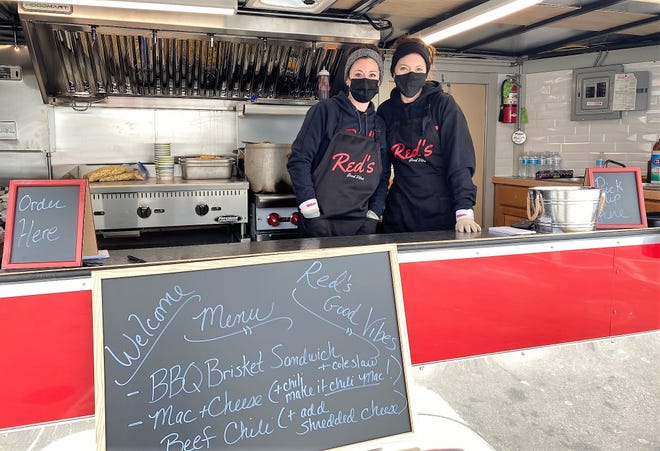 HOODMART
Order
Here
Red's
Good Vibes
Red's
Good Vibes
Pick
up
Welcome
Menu
Red's
Good Vibes
- BBQ Brisket Sandwich + coleslaw
- Mac + Cheese (+ chili make it chili Mac!)
Beef Chili (+ add shredded cheese)